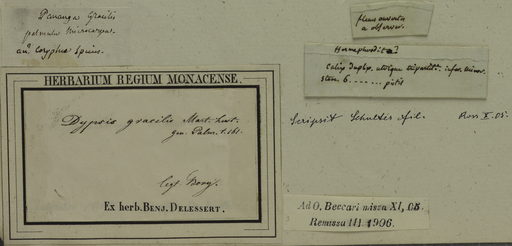 Pananga Gracilis
palmula microcarpa.
an coryphae species.
HERBARIUM REGIUM MONACENSE.
Dypsis gracilis Mart. hist.
gen. Palm. t. 161.
legt. Bory.
Ex herb. BENJ. DELESSERT.
a observer.
Hermaphrodite?
calix duplex, uterque tripartit. infer. minor.
stam. 6 
Scripsit Schultes fil. Ross X. 05.
Ad O. Beccari missa XI, 05.
Remissa III 1906.